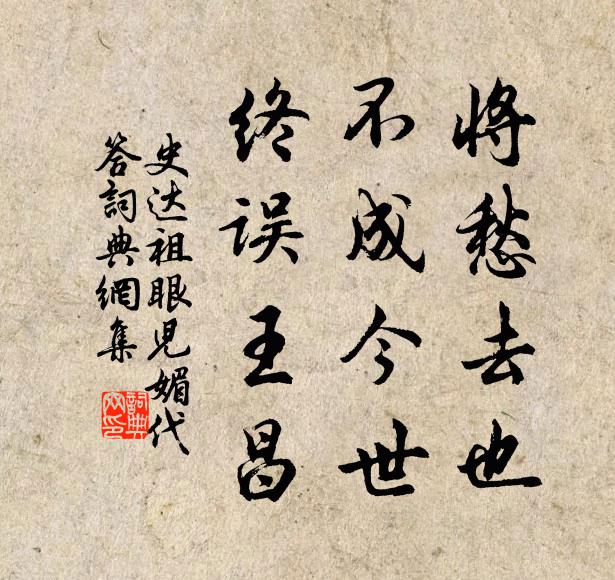 将愁去也
不成今世
终误王昌
史达祖眼児媚代
答詞典網集
詞典